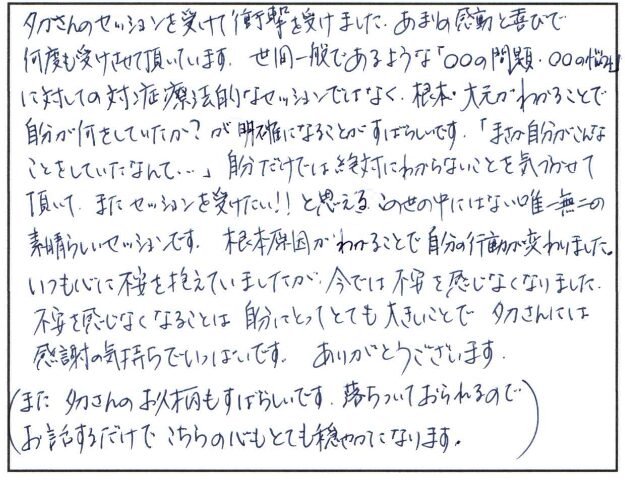 タカさんのセッションを受けて衝撃を受けました。あまりの感動と喜びで
何度も受けさせて頂いています。世間一般であるような「〇〇の問題・〇〇の悩み」
に対しての対症療法的なセッションではなく、根本・大元がわかることで
自分が何をしていたか?が明確になることがすばらしいです。「まさか自分がこんな
ことをしていたなんて…」自分だけでは絶対にわからないことを気づかせて
頂いて、またセッションを受けたい!!と思える この世の中にはない唯一無二の
素晴らしいセッションです。根本原因がわかることで自分の行動が変わりました。
いつも心に不安を抱えていましたが、今では不安を感じなくなりました。
不安を感じなくなることは 自分にとってとても大きいことで タカさんには
感謝の気持ちでいっぱいです。ありがとうございます。
(また タカさんのお人柄もすばらしいです。落ちついておられるので
お話するだけで こちらの心もとても穏やかになります。)